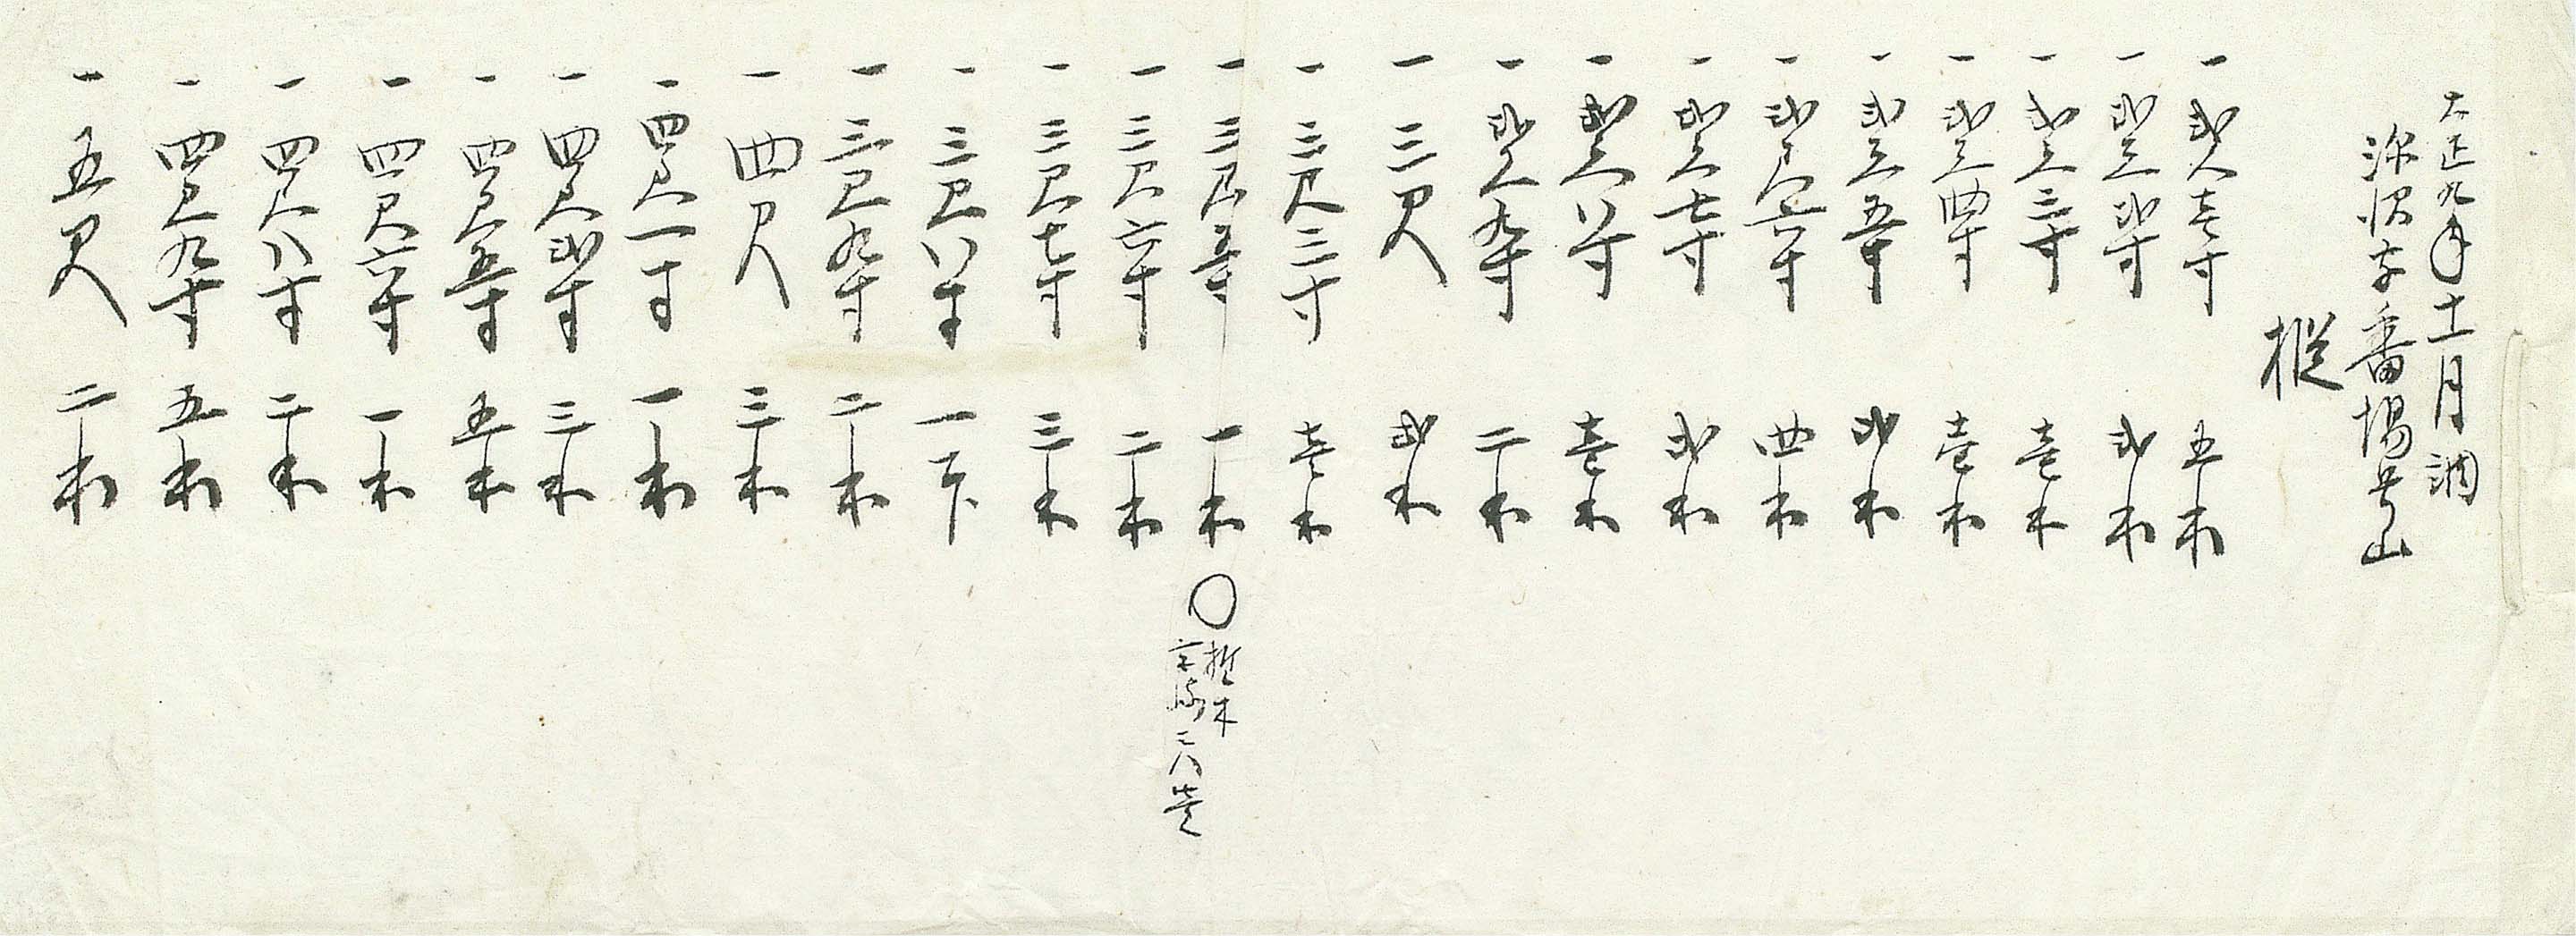 大正九年十一月調
深沢字番場号山
樅
一 弐尺壱寸 五本
一 弐尺弐寸 弐本
一 弐尺三寸 壱本
一 弐尺四寸 壱本
一 弐尺五寸 弐本
一 弐尺六寸 四本
一 弐尺七寸 弐本
一 弐尺八寸 壱本
一 弐尺九寸 二本
一 三尺 弐本
一 三尺三寸 壱本
一 三尺五寸 一本 〇
一 三尺六寸 二本
一 三尺七寸 三本
一 三尺八寸 一本
一 三尺九寸 二本
一 四尺 三本
一 四尺一寸 一本
一 四尺弐寸 三本
一 四尺五寸 五本
一 四尺六寸 一本
一 四尺八寸 二本
一 四尺九寸 五本
一 五尺 二本